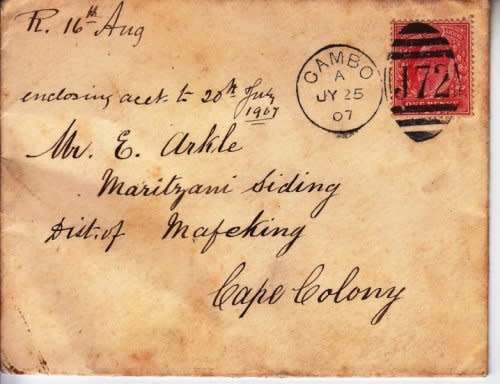 R. 16th Aug
enclosing acct. to 20th July
1907
Mr. E. Arkle
Maritzani Siding
Dist. of Mafeking
Cape Colony
CAMBO
A
JY 25
07
J72
ONE